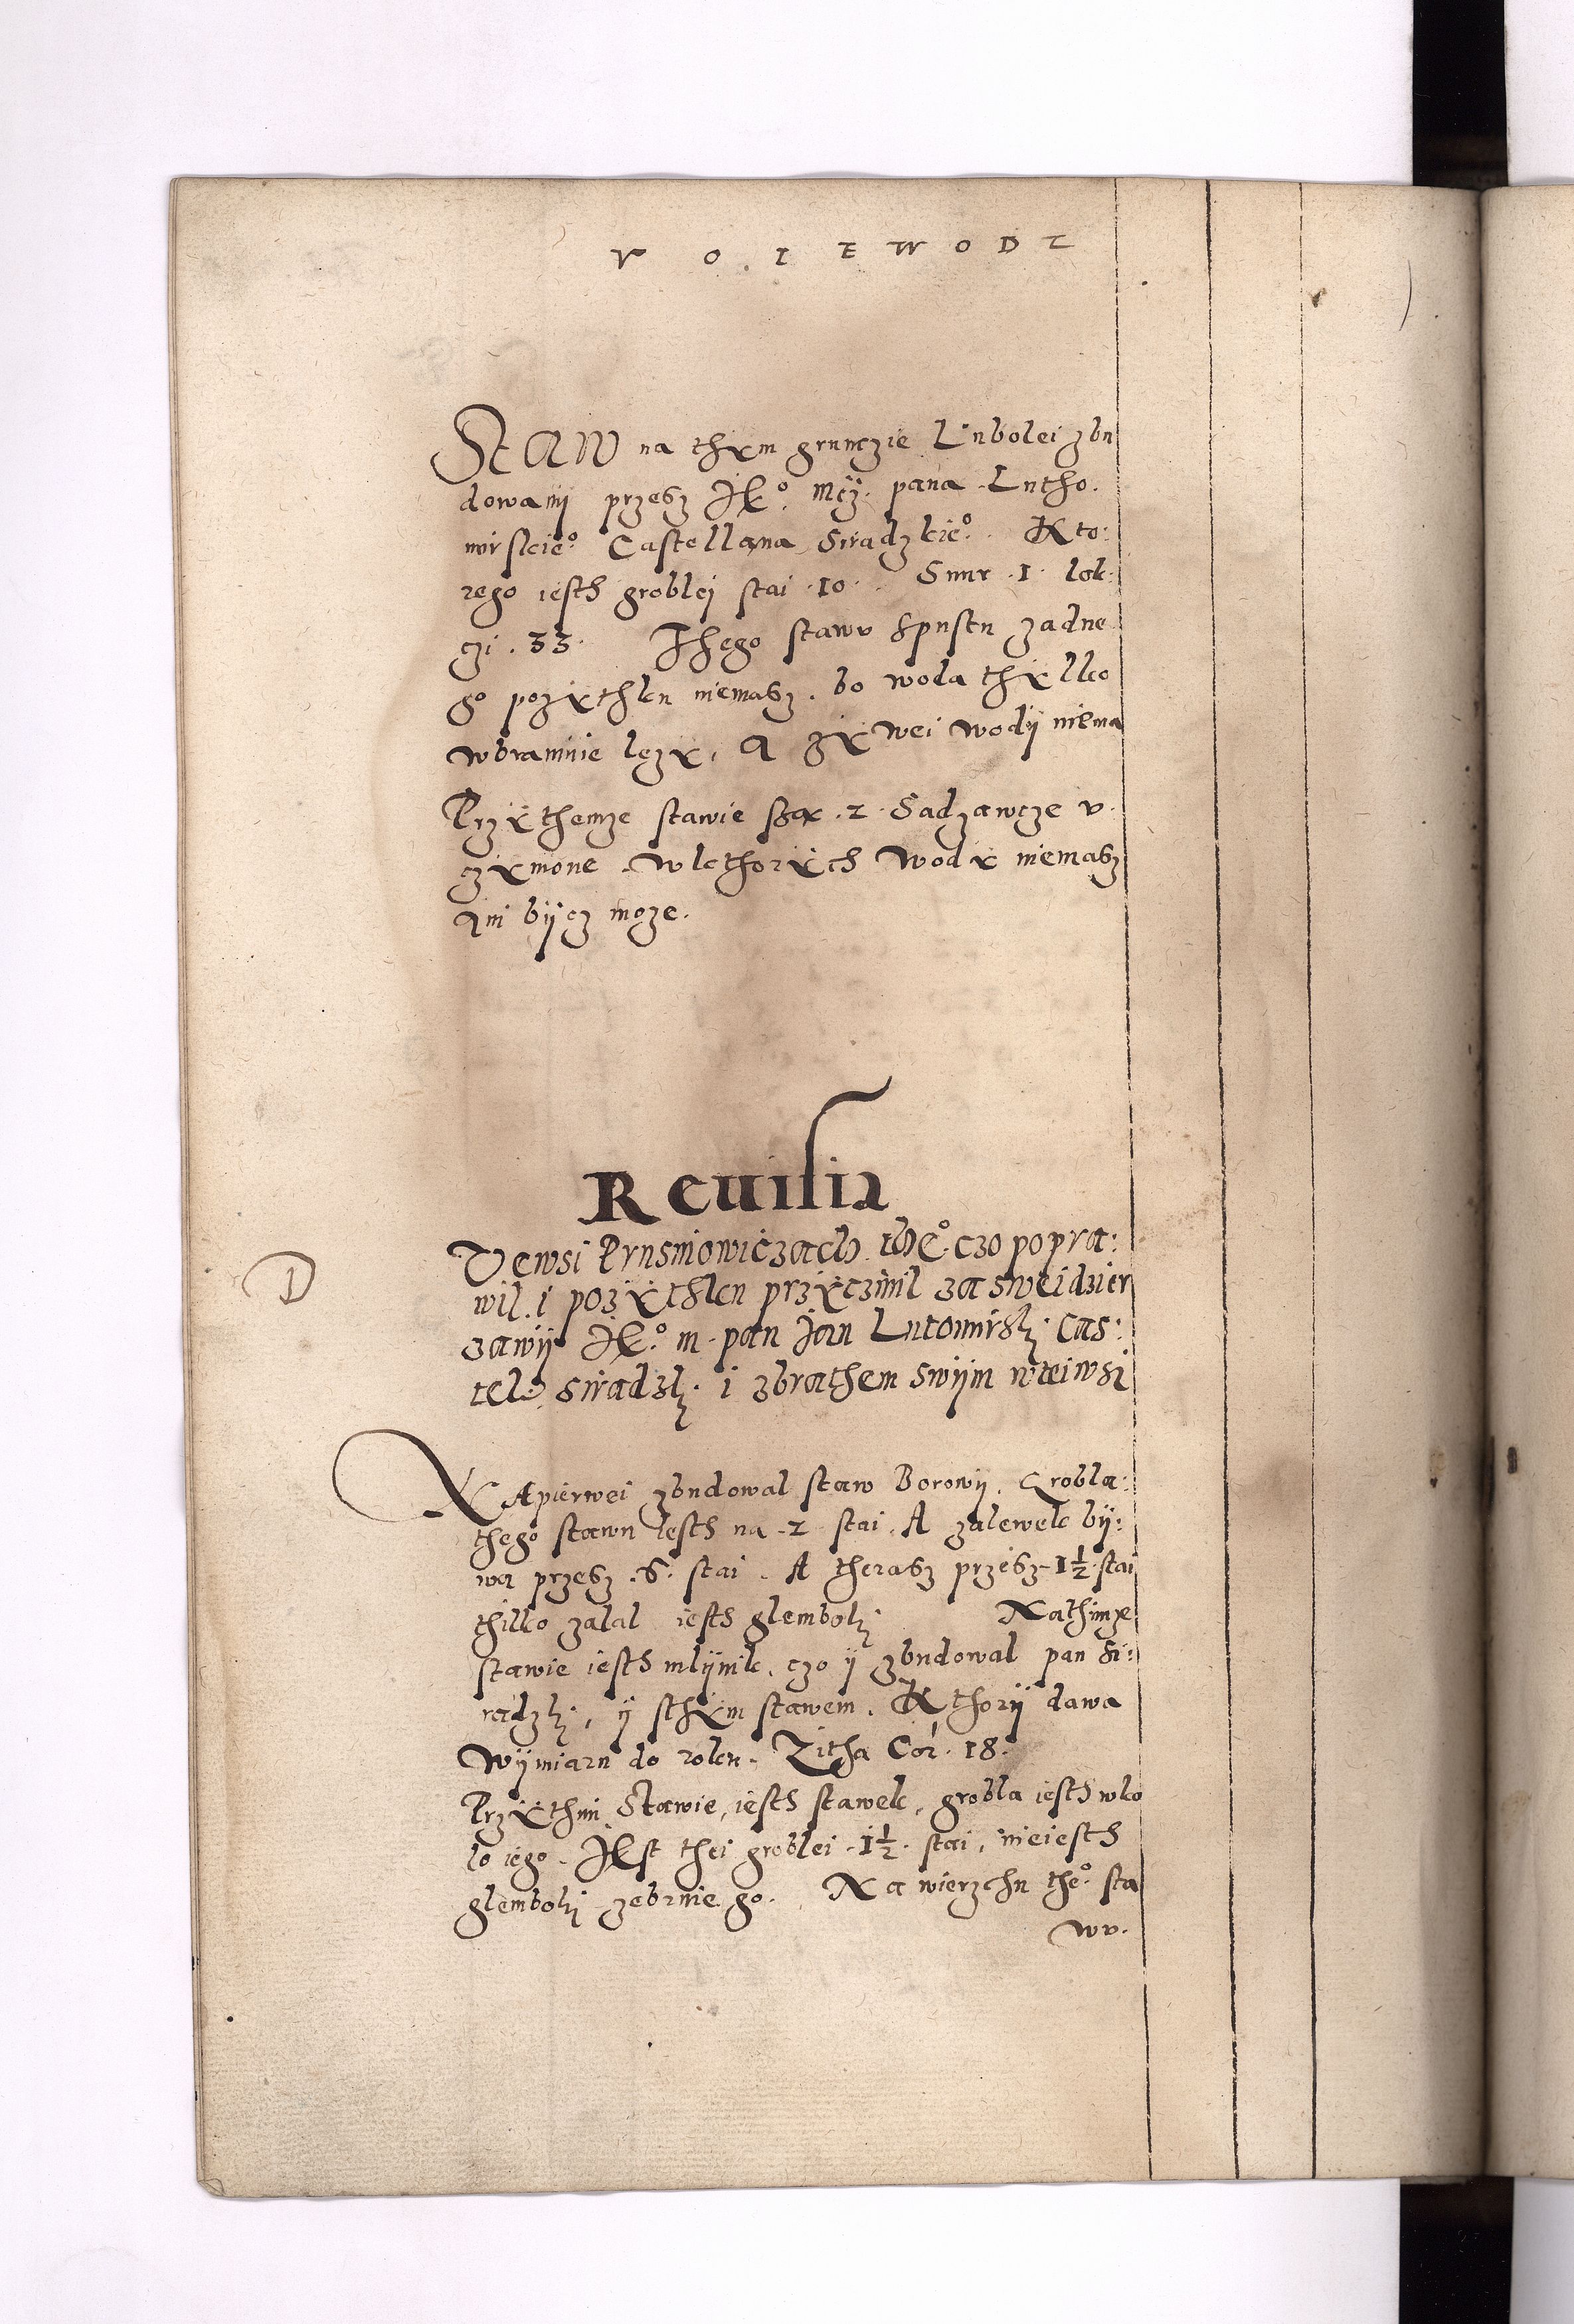 VOIEWODZ
STAW na thym grunczie Luboley zbu
dowany przesz Je⁰. Mczi. pana Lutho.
mirskie⁰. Castellana Siradzkie⁰. Kto:
rego iesth groblei stai .10. Snur .1. lok:
czi . 33. Thego stawu spustu zadne
go pozythku niemasz. bo woda thylko
wbramnie lezy, A zywei wody niema
Przythemze stawie sza .2. Sadzawcze v.
czymone . wkthorych wody niemasz
Ani bycz moze.
Revisia
D
Vewsi Prusinowiczach the⁰. czo popra:
wil. i pozythku przyczinil za swei dzier
zawy Je⁰. m. pan Jan Lutomirski. Cas:
tel. Siradzki. i zbrathem swym wteiwsi
NApierwei zbudowal staw Borowy. Grobla:
thego stawu iesth na .2. stai. A zalewek by:
wa przesz .6. stai. A therasz przesz .1½. stai
thilko zalal iesth glemboki Nathimze
stawie iesth mlynik. czo y zbudowal pan Si:
radzki, y sthym stawem. Kthory dawa
wymiaru do roku. Zitha Cor. 18.
Przythim Stawie, iesth stawek, grobla iesth wko
lo iego. Jest thei groblei .1½. stai, nieiesth
glemboki zebrnie go. Na wierzchu the⁰. sta
wu.